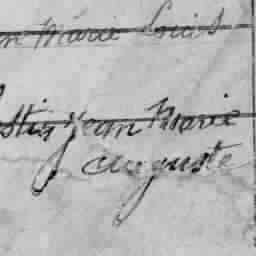 Marie Louis
Jean Marie
auguste